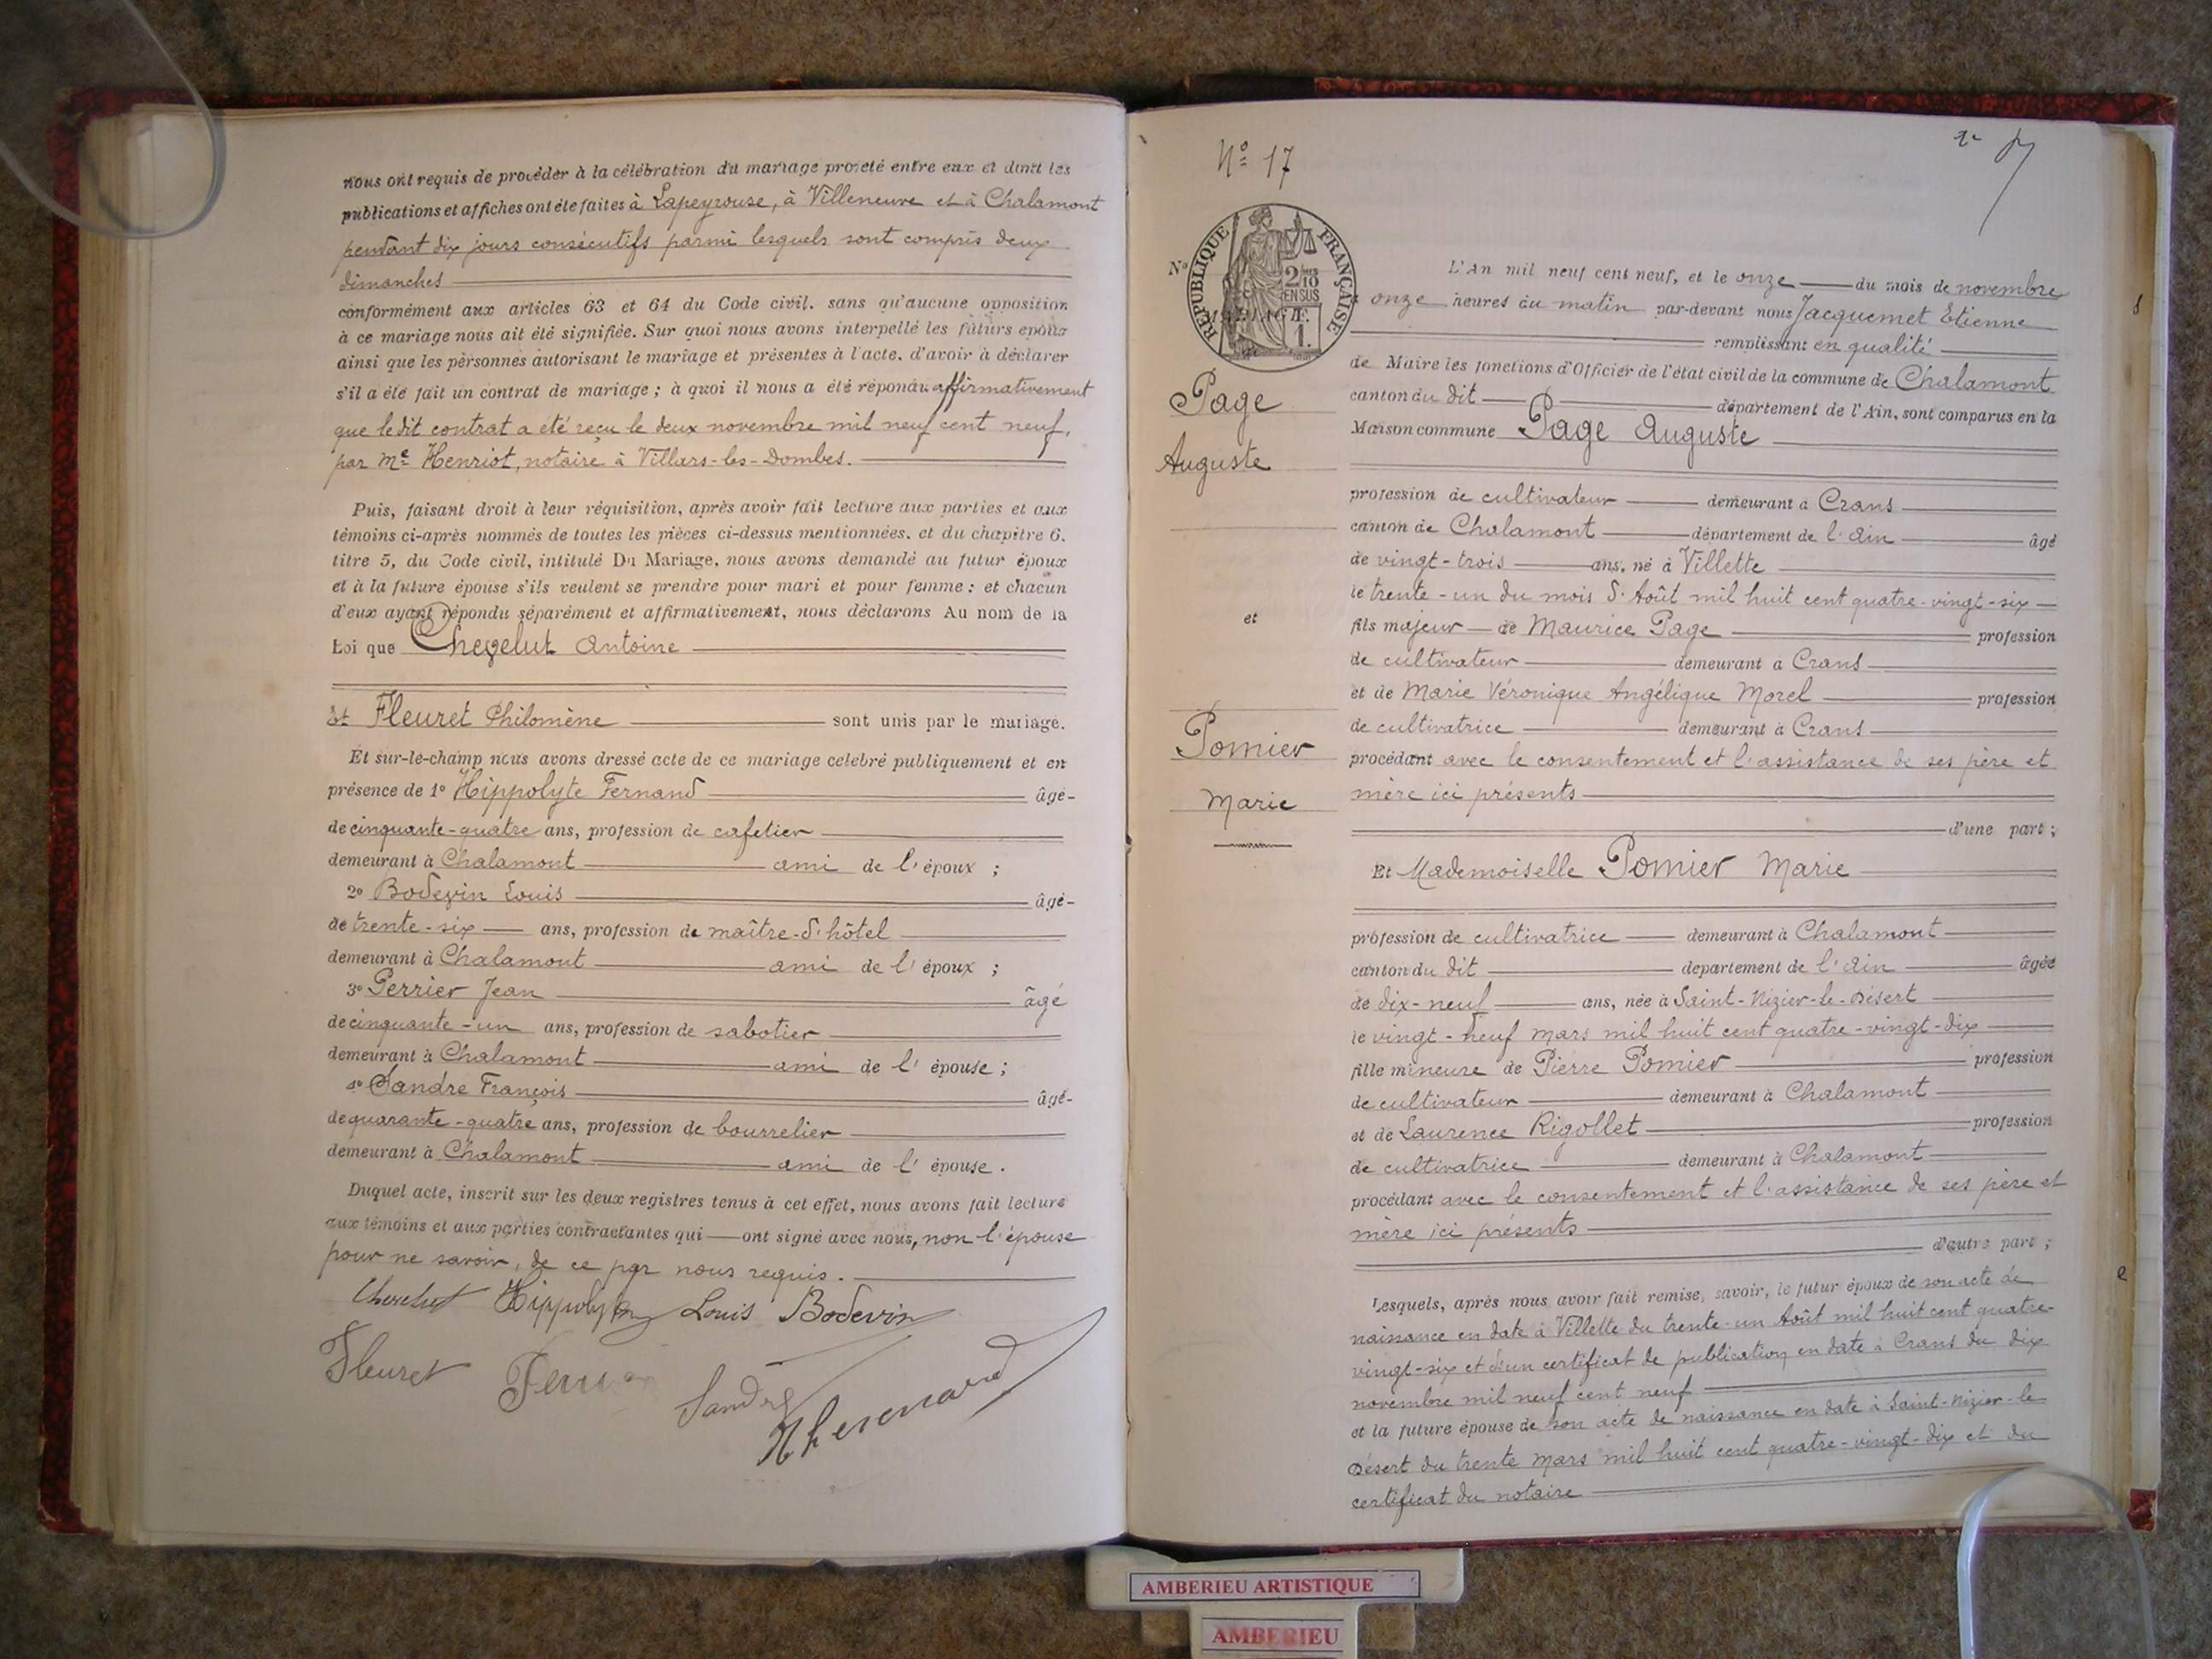 nous ont requis de procéder à la célébration du mariage projeté entre eux et dont les
publications et affiches ont été faites à Lapeyrouse, à Villeneuve et à Chalamont
pendant dix jours consécutifs parmi lesquels sont compris deux
dimanches
conformément aux articles 63 et 64 du Code civil. sans qu'aucune opposition
à ce mariage nous ait été signifiée. Sur quoi nous avons interpellé les futurs époux
ainsi que les personnes autorisant le mariage et présentes à l'acte. d'avoir à déclarer
s'il a été fait un contrat de mariage ; à quoi il nous a été répondu affirmativement
que ledit contrat a été reçu le deux novembre mil neuf cent neuf,
par Me Henriot, notaire à Villars-les-Dombes.
Puis, faisant droit à leur réquisition, après avoir fait lecture aux parties et aux
témoins ci-après nommés de toutes les pièces ci-dessus mentionnées. et du chapitre 6.
titre 5, du Code civil, intitulé Du Mariage, nous avons demandé au futur époux
et à la future épouse s'ils veulent se prendre pour mari et pour femme : et chacun
d'eux ayant répondu séparément et affirmativement, nous déclarons Au nom de la
Loi que Chevelut Antoine
Et Fleuret Philomène sont unis par le mariage.
Et sur-le-champ nous avons dressé acte de ce mariage célébré publiquement et en
présence de 1o Hippolyte Fernand âgé
de cinquante-quatre ans, profession de cafetier
demeurant à Chalamont ami de l'époux ;
2o Bodevin Louis âgé
de trente-six ans, profession de maître-d'hôtel
demeurant à Chalamont ami de l'époux ;
3o Perrier Jean âgé
de cinquante-un ans, profession de sabotier
demeurant à Chalamont ami de l'épouse ;
4o Sandre François âgé
de quarante-quatre ans, profession de bourrelier
demeurant à Chalamont ami de l'épouse .
Duquel acte, inscrit sur les deux registres tenus à cet effet, nous avons fait lecture
aux témoins et aux parties contractantes qui ont signé avec nous, non l'épouse
pour ne savoir, de ce par nous requis.
Hippolyte Louis Bodevin
Fleuret Sandre
No 17
No
RÉPUBLIQUE FRANÇAISE
2/10
EN SUS
1.
Page
Auguste
et
Pomier
Marie
L'An mil neuf cent neuf, et le onze du mois de novembre
à onze heures du matin par-devant nous Jacquemet Etienne
remplissant en qualité
de Maire les fonctions d'Officier de l'état civil de la commune de Chalamont
canton du dit département de l'Ain, sont comparus en la
Maison commune Page Auguste
profession de cultivateur demeurant à Crans
canton de Chalamont département de l'Ain âgé
de vingt-trois ans. né à Villette
le trente-un du mois d'Août mil huit cent quatre-vingt-six
fils majeur de Maurice Page profession
de cultivateur demeurant à Crans
et de Marie Véronique Angélique Morel profession
de cultivatrice demeurant à Crans
procédant avec le consentement et l'assistance de ses père et
mère ici présents
d'une part ;
Et Mademoiselle Pomier Marie
profession de cultivatrice demeurant à Chalamont
canton du dit département de l'Ain âgée
de dix-neuf ans, née à Saint-Nizier-le-Désert
le vingt-neuf Mars mil huit cent quatre-vingt-dix
fille mineure de Pierre Pomier profession
de cultivateur demeurant à Chalamont
et de Laurence Rigollet profession
de cultivatrice demeurant à Chalamont
procédant avec le consentement et l'assistance de ses père et
mère ici présents
d'autre part ;
Lesquels, après nous avoir fait remise, savoir, le futur époux de son acte de
naissance en date à Villette du trente-un Août mil huit cent quatre-
vingt-six et d'un certificat de publication en date à Crans du dix
novembre mil neuf cent neuf
et la future épouse de son acte de naissance en date à Saint-Nizier-le
Désert du trente Mars mil huit cent quatre-vingt-dix et du
certificat du notaire
AMBERIEU ARTISTIQUE
AMBERIEU